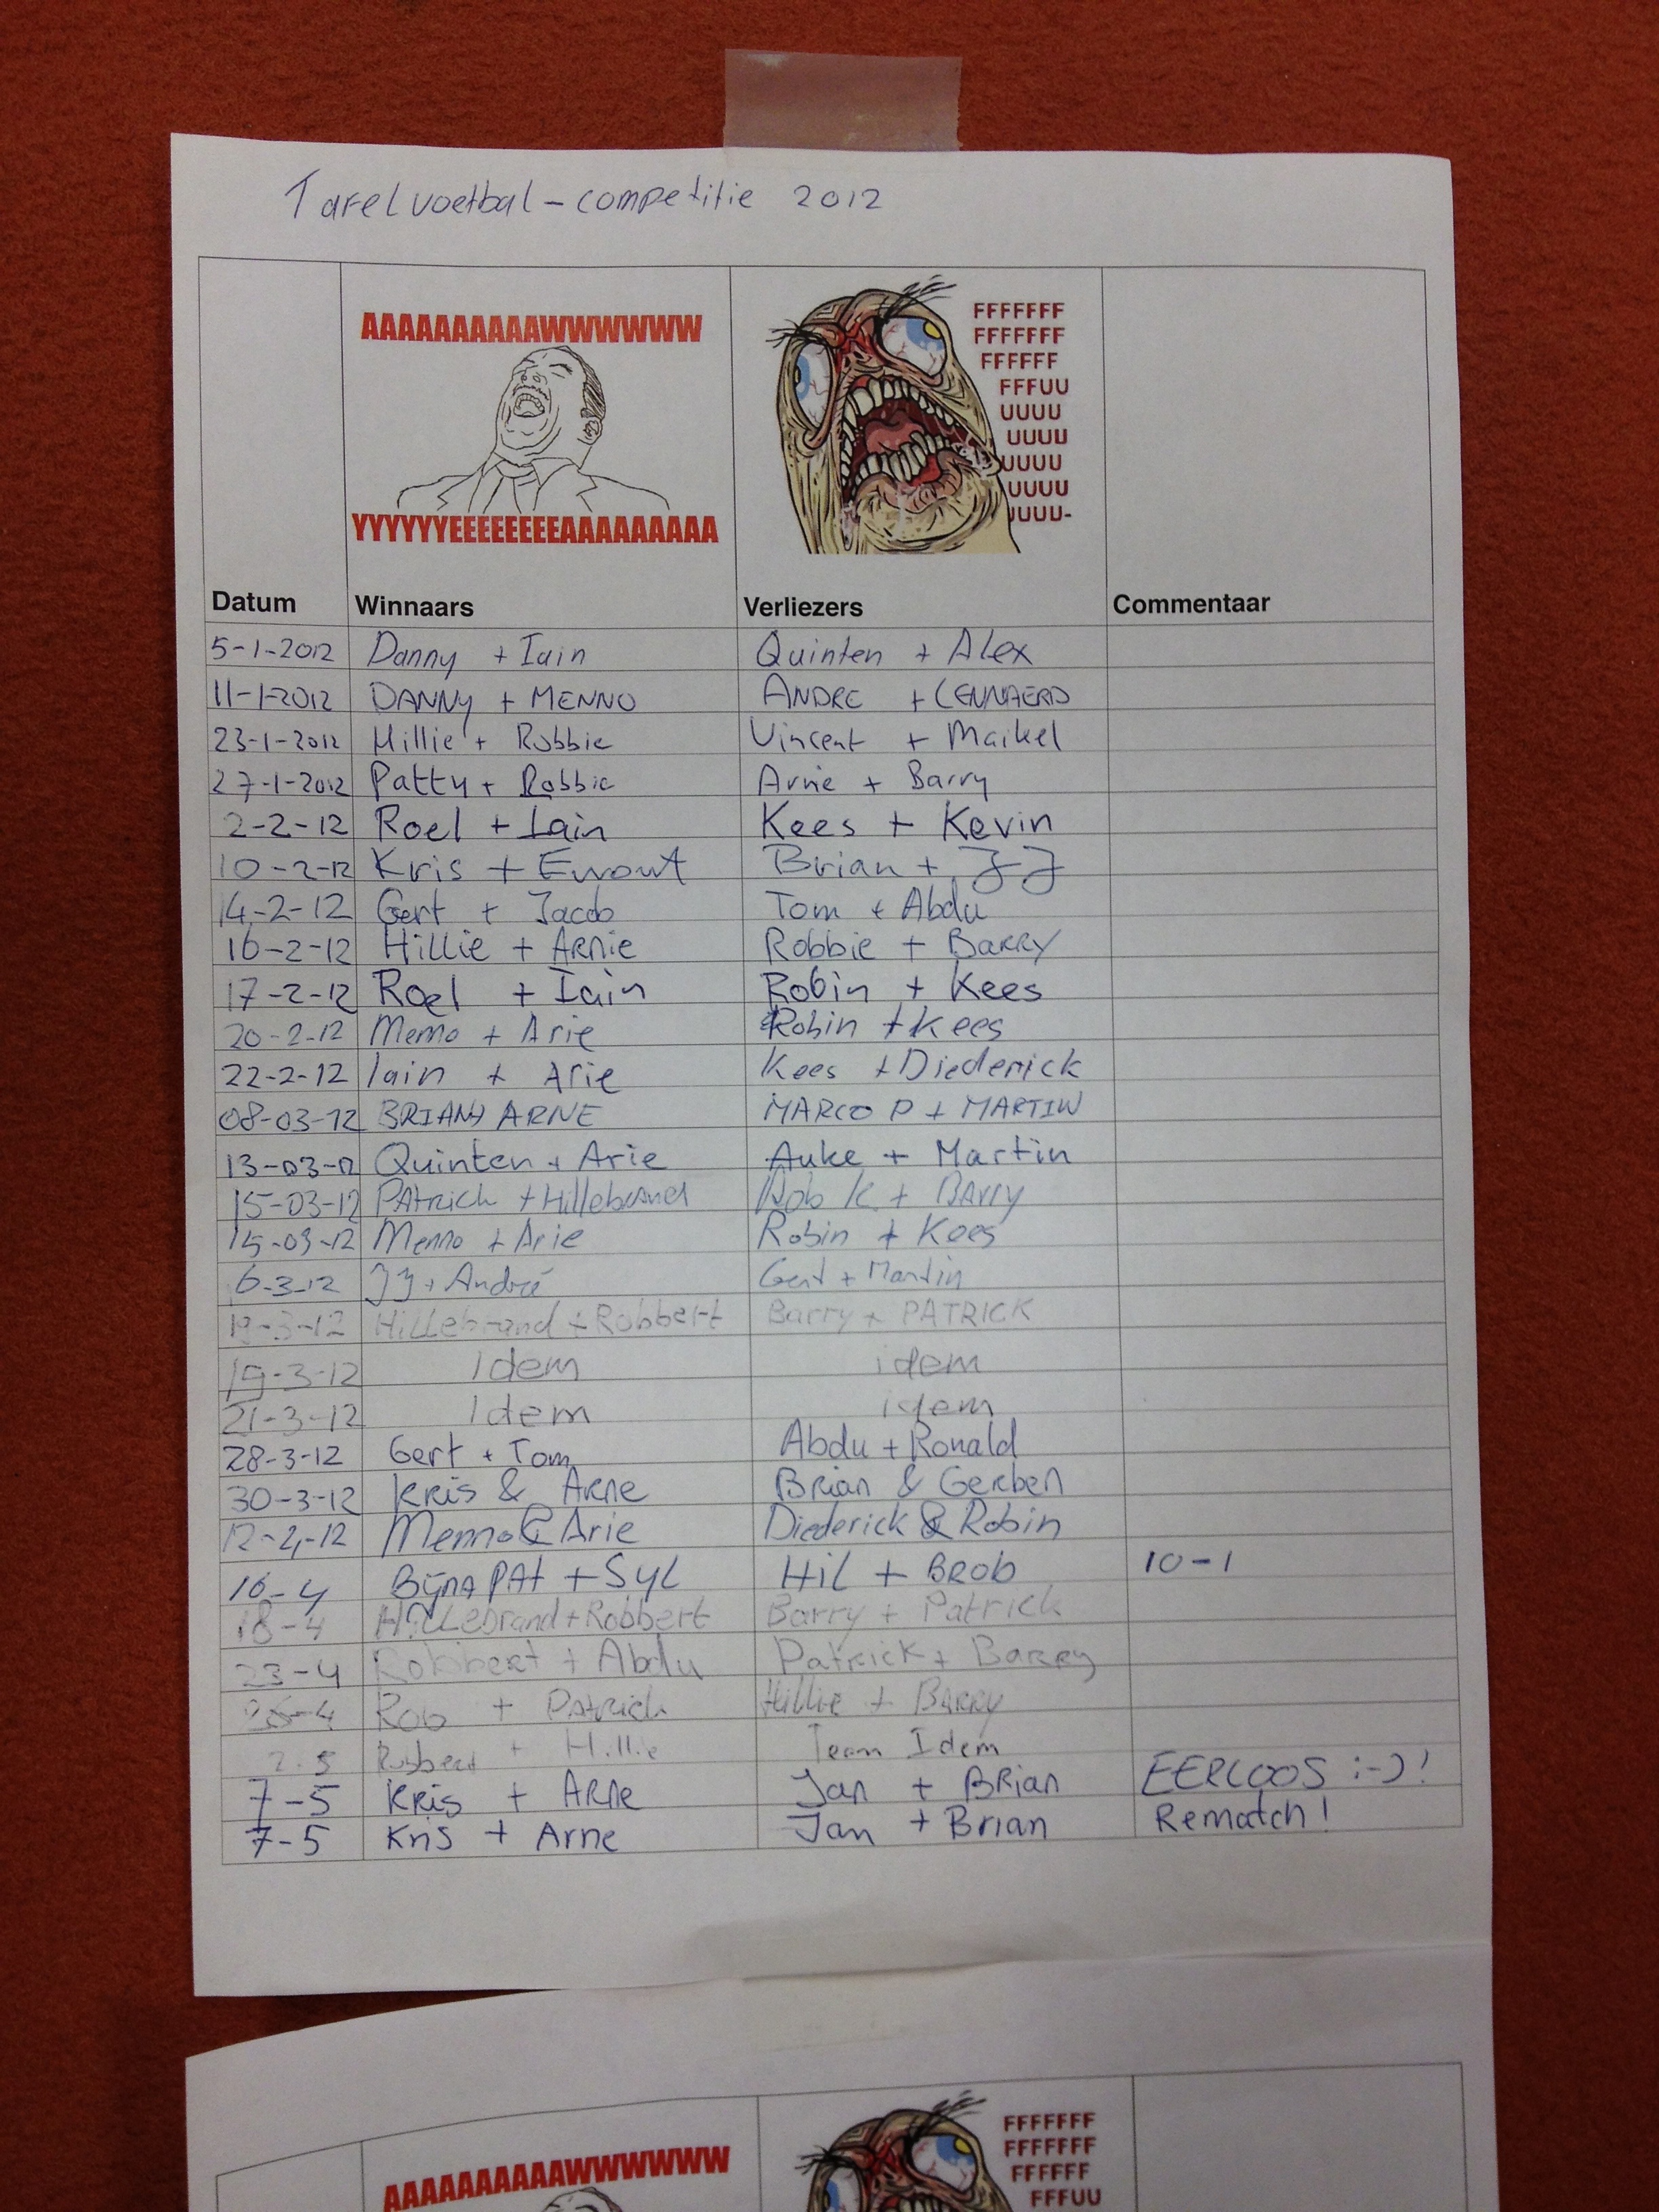 Tafelvoetbal - competitie 2012
AAAAAAAAAAWWWWWW
YYYYYYEEEEEEEEAAAAAAAAA
FFFFFFF
FFFFFFF
FFFFFF
FFFUU
UUUU
UUUU
UUUU
UUUU
UUUU-
Datum Winnaars Verliezers Commentaar
5-1-2012 Danny + Iain Quinten + Alex
11-1-2012 DANNY + MENNO ANDRE + LENNAERD
23-1-2012 Hillie + Robbie Vincent + Maikel
27-1-2012 Patty + Robbie Arne + Barry
2-2-12 Roel + Iain Kees + Kevin
10-2-12 Kris + Ewout Brian + JJ
14-2-12 Gert + Jacob Tom + Abdu
16-2-12 Hillie + ARNie Robbie + BARRY
17-2-12 Roel + Iain Robin + Kees
20-2-12 Menno + Arie Robin + Kees
22-2-12 Iain + Arie Kees + Diederick
08-03-12 BRIAN + ARNE MARCO P + MARTIN
13-03-12 Quinten + Arie Auke + Martin
15-03-12 PAtrick + Hillebrand Rob K + BArry
15-03-12 Menno + Arie Robin + Kees
6-3-12 JJ + André Gert + Martin
19-3-12 HiLLebrand + Robbert Barry + PATRICK
19-3-12 Idem idem
21-3-12 Idem idem
28-3-12 Gert + Tom Abdu + Ronald
30-3-12 KRis & ARNe BRian & GeRben
12-4-12 Menno & Arie Diederick & Robin
16-4 Bijna PAt + SyL HiL + BROB 10-1
18-4 HiLLebrand + Robbert Barry + Patrick
23-4 Robbert + Abdu Patrick + BaRRy
Rob + PAtrick Hillie + BARRY
2-5 Robbert + Hillie Team Idem
7-5 KRis + ARNe Jan + BRian EERLOOS :-)!
7-5 Kris + Arne Jan + Brian Rematch!
AAAAAAAAAAWWWWWW
FFFFFFF
FFFFFFF
FFFFFF
FFFUU